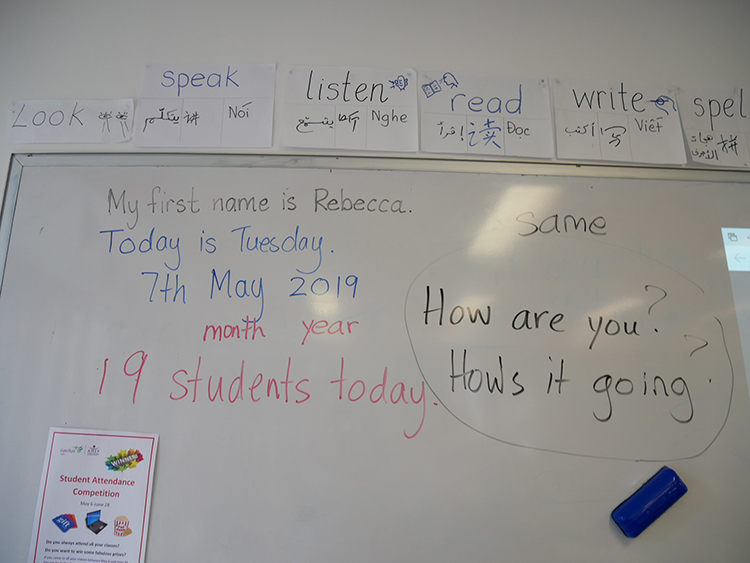 Look
speak
يتكلم 讲 Nói
listen
يستمع Nghe
read
اقرأ 读 Đọc
write
أكتب 写 Viết
spel
拼
My first name is Rebecca.
Today is Tuesday.
7th May 2019
month year
19 students today.
same
How are you?
How's it going?
WINNER
Student Attendance
Competition
Do you always attend all your classes?
Do you want to win some fabulous prizes?